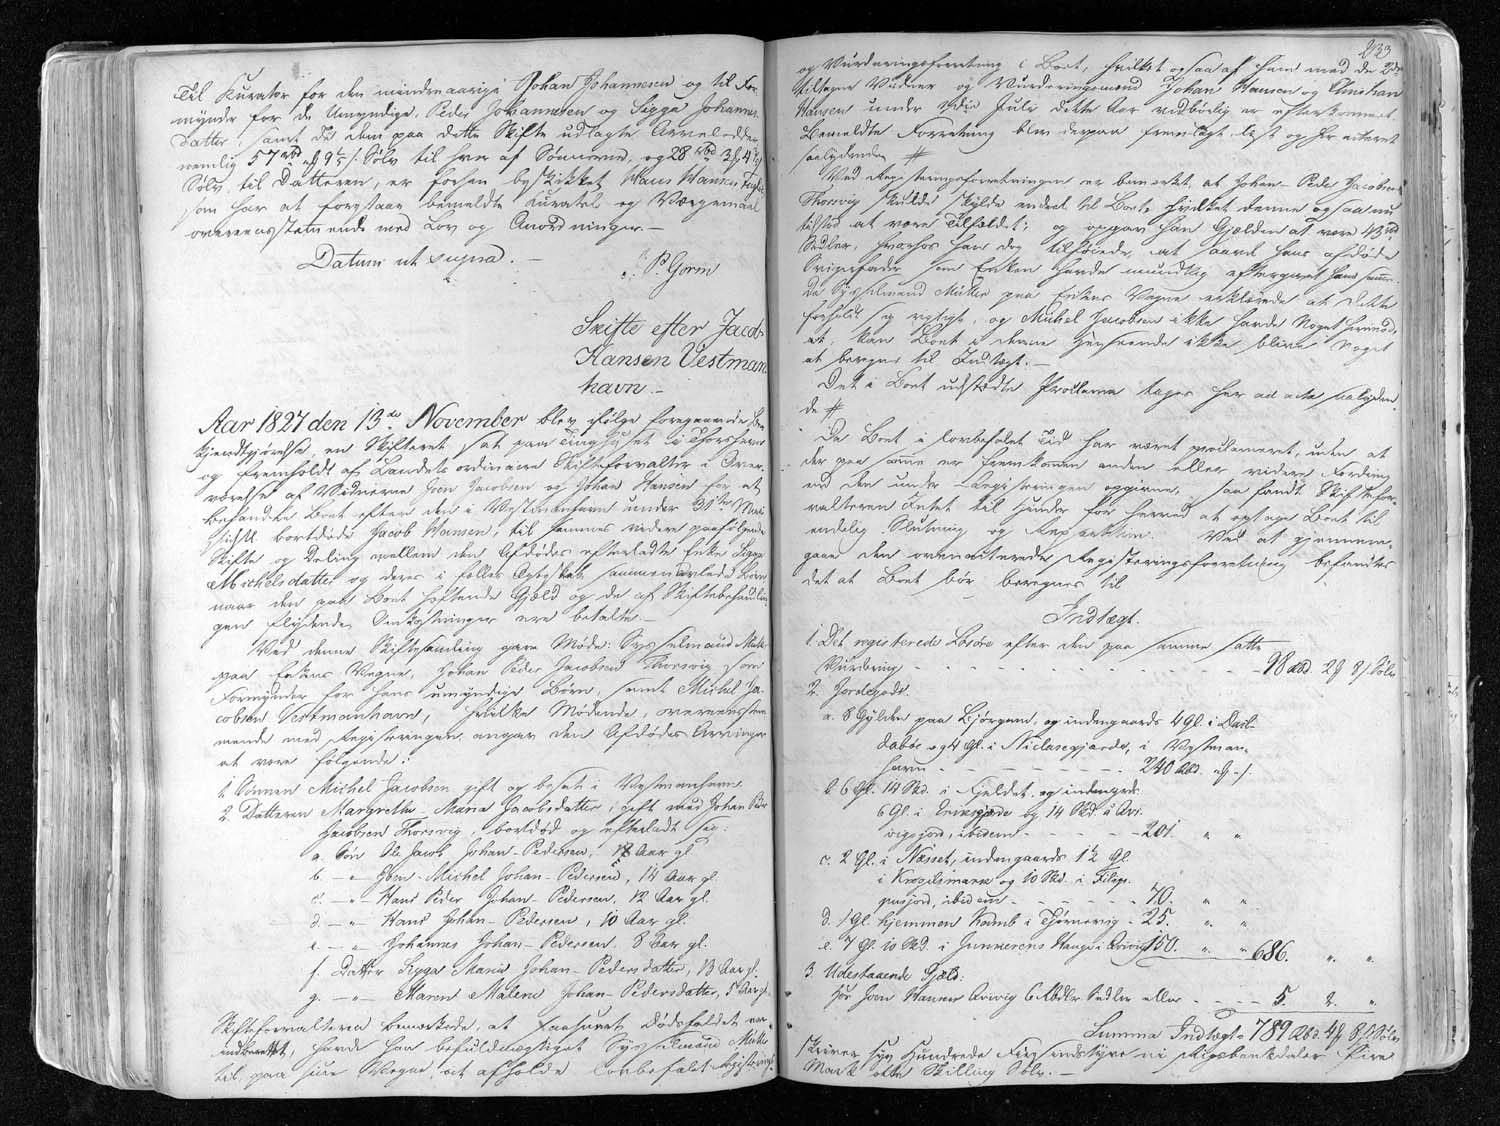 Til Kurator for den mindreaarige Johan Johannesen og til For-
mynder for de Umyndige, Peder Johannesen og Sigga Johannes-
datter, samt det dem paa dette Skifte udlagte Arvelodder
nemlig 57 rbd 9 s. Sølv til hver af Sønnerne, og 28 rbd 3 4
Sølv til Datteren, er forhen beskikket Hans Hansen
som har at forestaae bemeldte Kuratel og Værgemaal
overeensstemmende med Lov og Anordninger.—
Datum ut supra.—
P. Gorm
Skifte efter Jacob
Hansen Vestman-
havn.—
Aar 1827 den 13de November blev ifølge foregaaende Be-
kjendtgjørelse en Skifteret sat paa Tinghuset i Thorshavn
og fremholdt af Landets ordinaire Skifteforvalter i Over-
værelse af Vidnerne Joen Jacobsen og Johan Hansen for at
behandle Boet efter den i Vestmanhavn under 31te Marti
sidstl. bortdøde Jacob Hansen, til sammes videre paafølgende
Skifte og Deling mellem den Afdødes efterladte Enke Sigga
Michelsdatter og deres i fælles Ægteskab sammenavlede Børn
naar den paa Boet heftende Gjæld og de af Skiftebehandlin-
gen flydende Omkostninger ere betalte.—
Ved denne Skiftesamling gave Møde: Sysselmand Müller
paa Enkens Vegne, Johan Peder Jacobsen Thorsvig som
Formynder for hans umyndige Børn, samt Michel Ja-
cobsen Vestmanhavn, hvilke Mødende, overeensstem-
mende med Registeringen angav den Afdødes Arvinger
at være følgende:
1. Sønnen Michel Jacobsen gift og bosat i Vestmanhavn.
2. Datteren Margrethe Maria Jacobsdatter, gift med Johan Peder
Jacobsen Thorsvig, bortdød og efterladt sig:
a. Søn Ole Jacob Johan-Pedersen, 18 Aar gl.
b. — " Joen Michel Johan-Pedersen, 14 Aar gl.
c. — " Hans Peder Johan-Pedersen, 12 Aar gl.
d. — " Hans Johan-Pedersen, 10 Aar gl.
e. — " Johannes Johan-Pedersen, 8 Aar gl.
f. Datter Sigga Maria Johan-Pedersdatter, 13 Aar gl.
g. — " — Maren Malene Johan-Pedersdatter, 5 Aar gl.
Skifteforvalteren bemærkede, at saasnart Dødsfaldet var
indberettet, havde han befuldmægtiget Sysselmand Müller
til, paa sine Vegne, at afholde lovbefalet Registerings-
233
og Vurderingsforretning i Boet, hvilket ogsaa af ham med de
tiltagne Vidner og Vurderingsmænd Johan Hansen og Christian
Hansen under Juli dette Aar vedbørlig er efterkommet.
Bemeldte Forretning blev derpaa fremlagt, læst og her acteret
saalydende #
Ved Registeringsforretningen er bemærket at Johan-Peder Jacobsen
Thorsvig skulde skylde endeel til Boet, hvilket denne ogsaa nu
tilstod at være Tilfældet; og opgav han Gjælden at være 43 rbd
Sedler, hvorhos han dog tilføiede, at saavel hans afdøde
Svigerfader som Enken havde mundtlig eftergivet ham samme.
Da Sysselmand Müller paa Enkens Vegne erklærede at dette
forholdt sig rigtigt, og Michel Jacobsen ikke havde Noget herimod,
at, kan Boet i denne Henseende ikke blive Noget
at beregne til Indtægt.—
Det i Boet udstædte Proclama tages her ad acta saalyden-
de #
Da Boet i lovbefalet Tid har været proclameret, uden at
der paa samme er fremkommen anden eller videre Fordring
end den under Registeringen opgivne, saa fandt Skiftefor-
valteren Intet til Hinder for herved at optage Boet til
endelig Slutning og Repartition. Ved at gjennem-
gaae den ovenacterede Registeringsforretning befandtes
det at Boet bør beregnes til
Indtægt.
1. Det registerede Løsøre efter den paa samme satte
Vurdering - - - - - - 98 rbd. 2 8 s. Sølv
2. Jordegods:
a. 8 Gylden paa Bjørgum, og indengaards 4 Gl. i Dahl-
dabøe og 4 Gl. i Niclasegjærde, i Vestman-
havn - - - - - - - 240 Rbd. " "
b. 6 Gl. 14 Skd. i Fjeldet, og indengrds.
6 Gl. i Eriksgjærde og 14 Skd. i Qvi-
vigsjord, ibidem - - - - - 201. " "
c. 2 Gl. i Næsset, indengaards 1½ Gl.
i Krogilsmark og 10 Skd. i Filips-
pusjord, ibidem - - - - - 70. " "
d. 1 Gl. hjemmen Kamb i Tjørnevig - 25. " "
e. 7 Gl. 10 Skd. i Gunnerens Hauge i Qvivig 150. " " 686. " "
3. Udestaaende Gjæld:
hos Joen Hanner Qvivig 6 Rbdlr Sedler eller - - - - 5. 2. "
Summa Indtægt - 789 Rbd. 4 8 s. Sølv
skriver syv Hundrede Fiirsindstyve ni Rigsbankdaler Fire
Mark otte Skilling Sølv.—